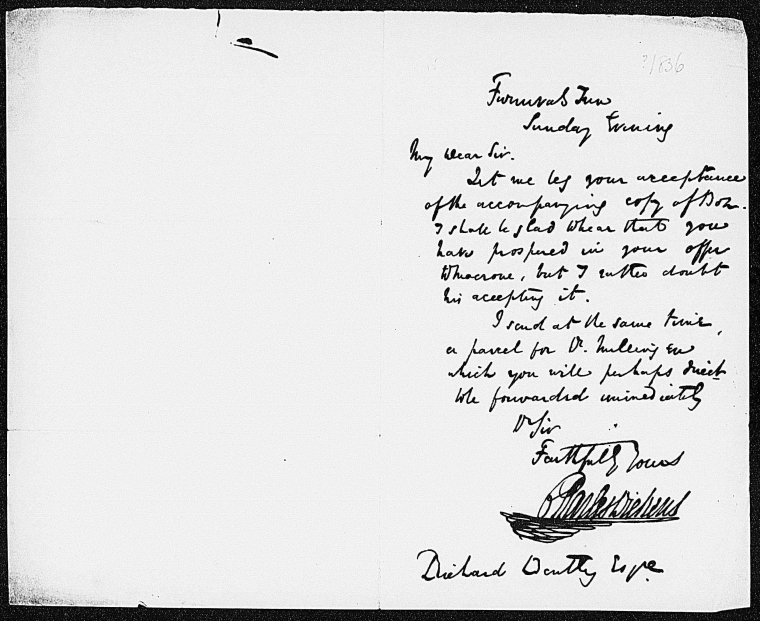 ?1836
Furnivals Inn
Sunday Evening
My Dear Sir.
Let me beg your acceptance
of the accompanying copy of Boz.
I shall be glad to hear that you
have prospered in your offer
to Macrone, but I rather doubt
his accepting it.
I send at the same time,
a parcel for Dr.
which you will perhaps direct
to be forwarded immediately
Dr Sir
Faithfully Yours
Charles Dickens
Richard Bentley Esqre